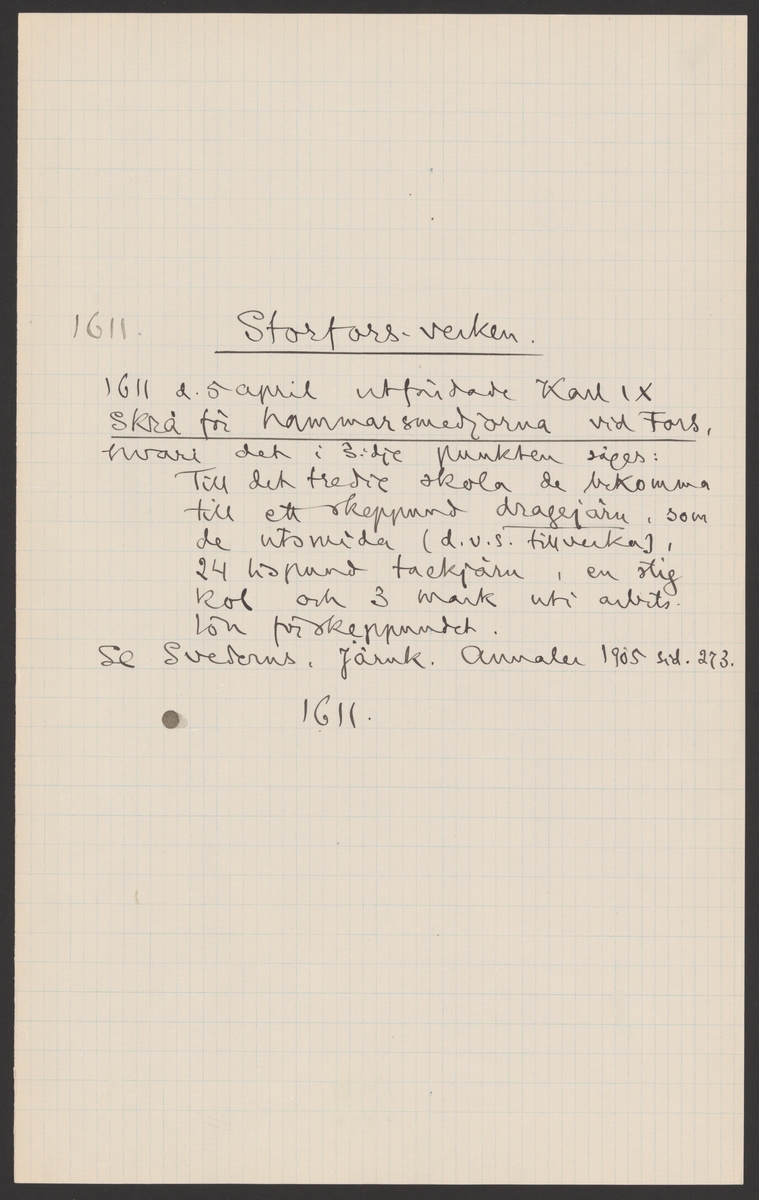 1611.
Storfors-verken.
1611 d. 5 april utfärdade Karl IX
Skrå för hammarsmedjorna vid Fors,
hvari det i 3:dje punkten säges:
Till det tredje skola de bekomma
till ett skeppund dragejärn, som
de utsmida (d.v.s. tillverka),
24 lispund tackjärn, en stig
kol och 3 mark uti arbets-
lön för skeppundet.
Se Svederus, Järnk. Annaler 1905 sid. 273.
1611.